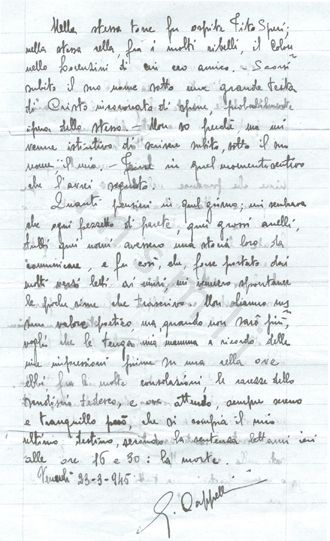 Nella stessa torre fu ospite Tito Speri,
nella stessa cella, fra i molti ribelli, il Colon
nello Lorenzini di cui ero amico. - Scorsi
subito il suo nome sotto una grande testa
di Cristo incoronato di spine, probabilmente
opera dello stesso. - Non so perché ma mi
venne istintivo di scrivere subito, sotto il suo
nome il mio. - in quel momento sentivo
che l'avrei seguito.
Quanti pensieri in quel giorno; mi sembrava
che ogni pezzetto di parete, quei grossi anelli,
tutti quei nomi avessero una storia loro da
comunicare, e fu così, che, forse portato dai
molti versi letti sui muri, mi vennero spontanee
le poche rime che trascrivo. Non abbiamo nes
sun valore poetico ma quando non sarò più,
voglio che le tenga mia mamma a ricordo delle
mie impressioni prime in una cella ove
ebbi fra le molte consolazioni, le carezze dello
Federico, e ora attendo, sempre sereno
e tranquillo però, che si compia il mio
ultimo destino, secondo la sentenza lettami ieri
alle ore 16 e 30: la morte.
Venerdì 23-3-945
G. Cappellini